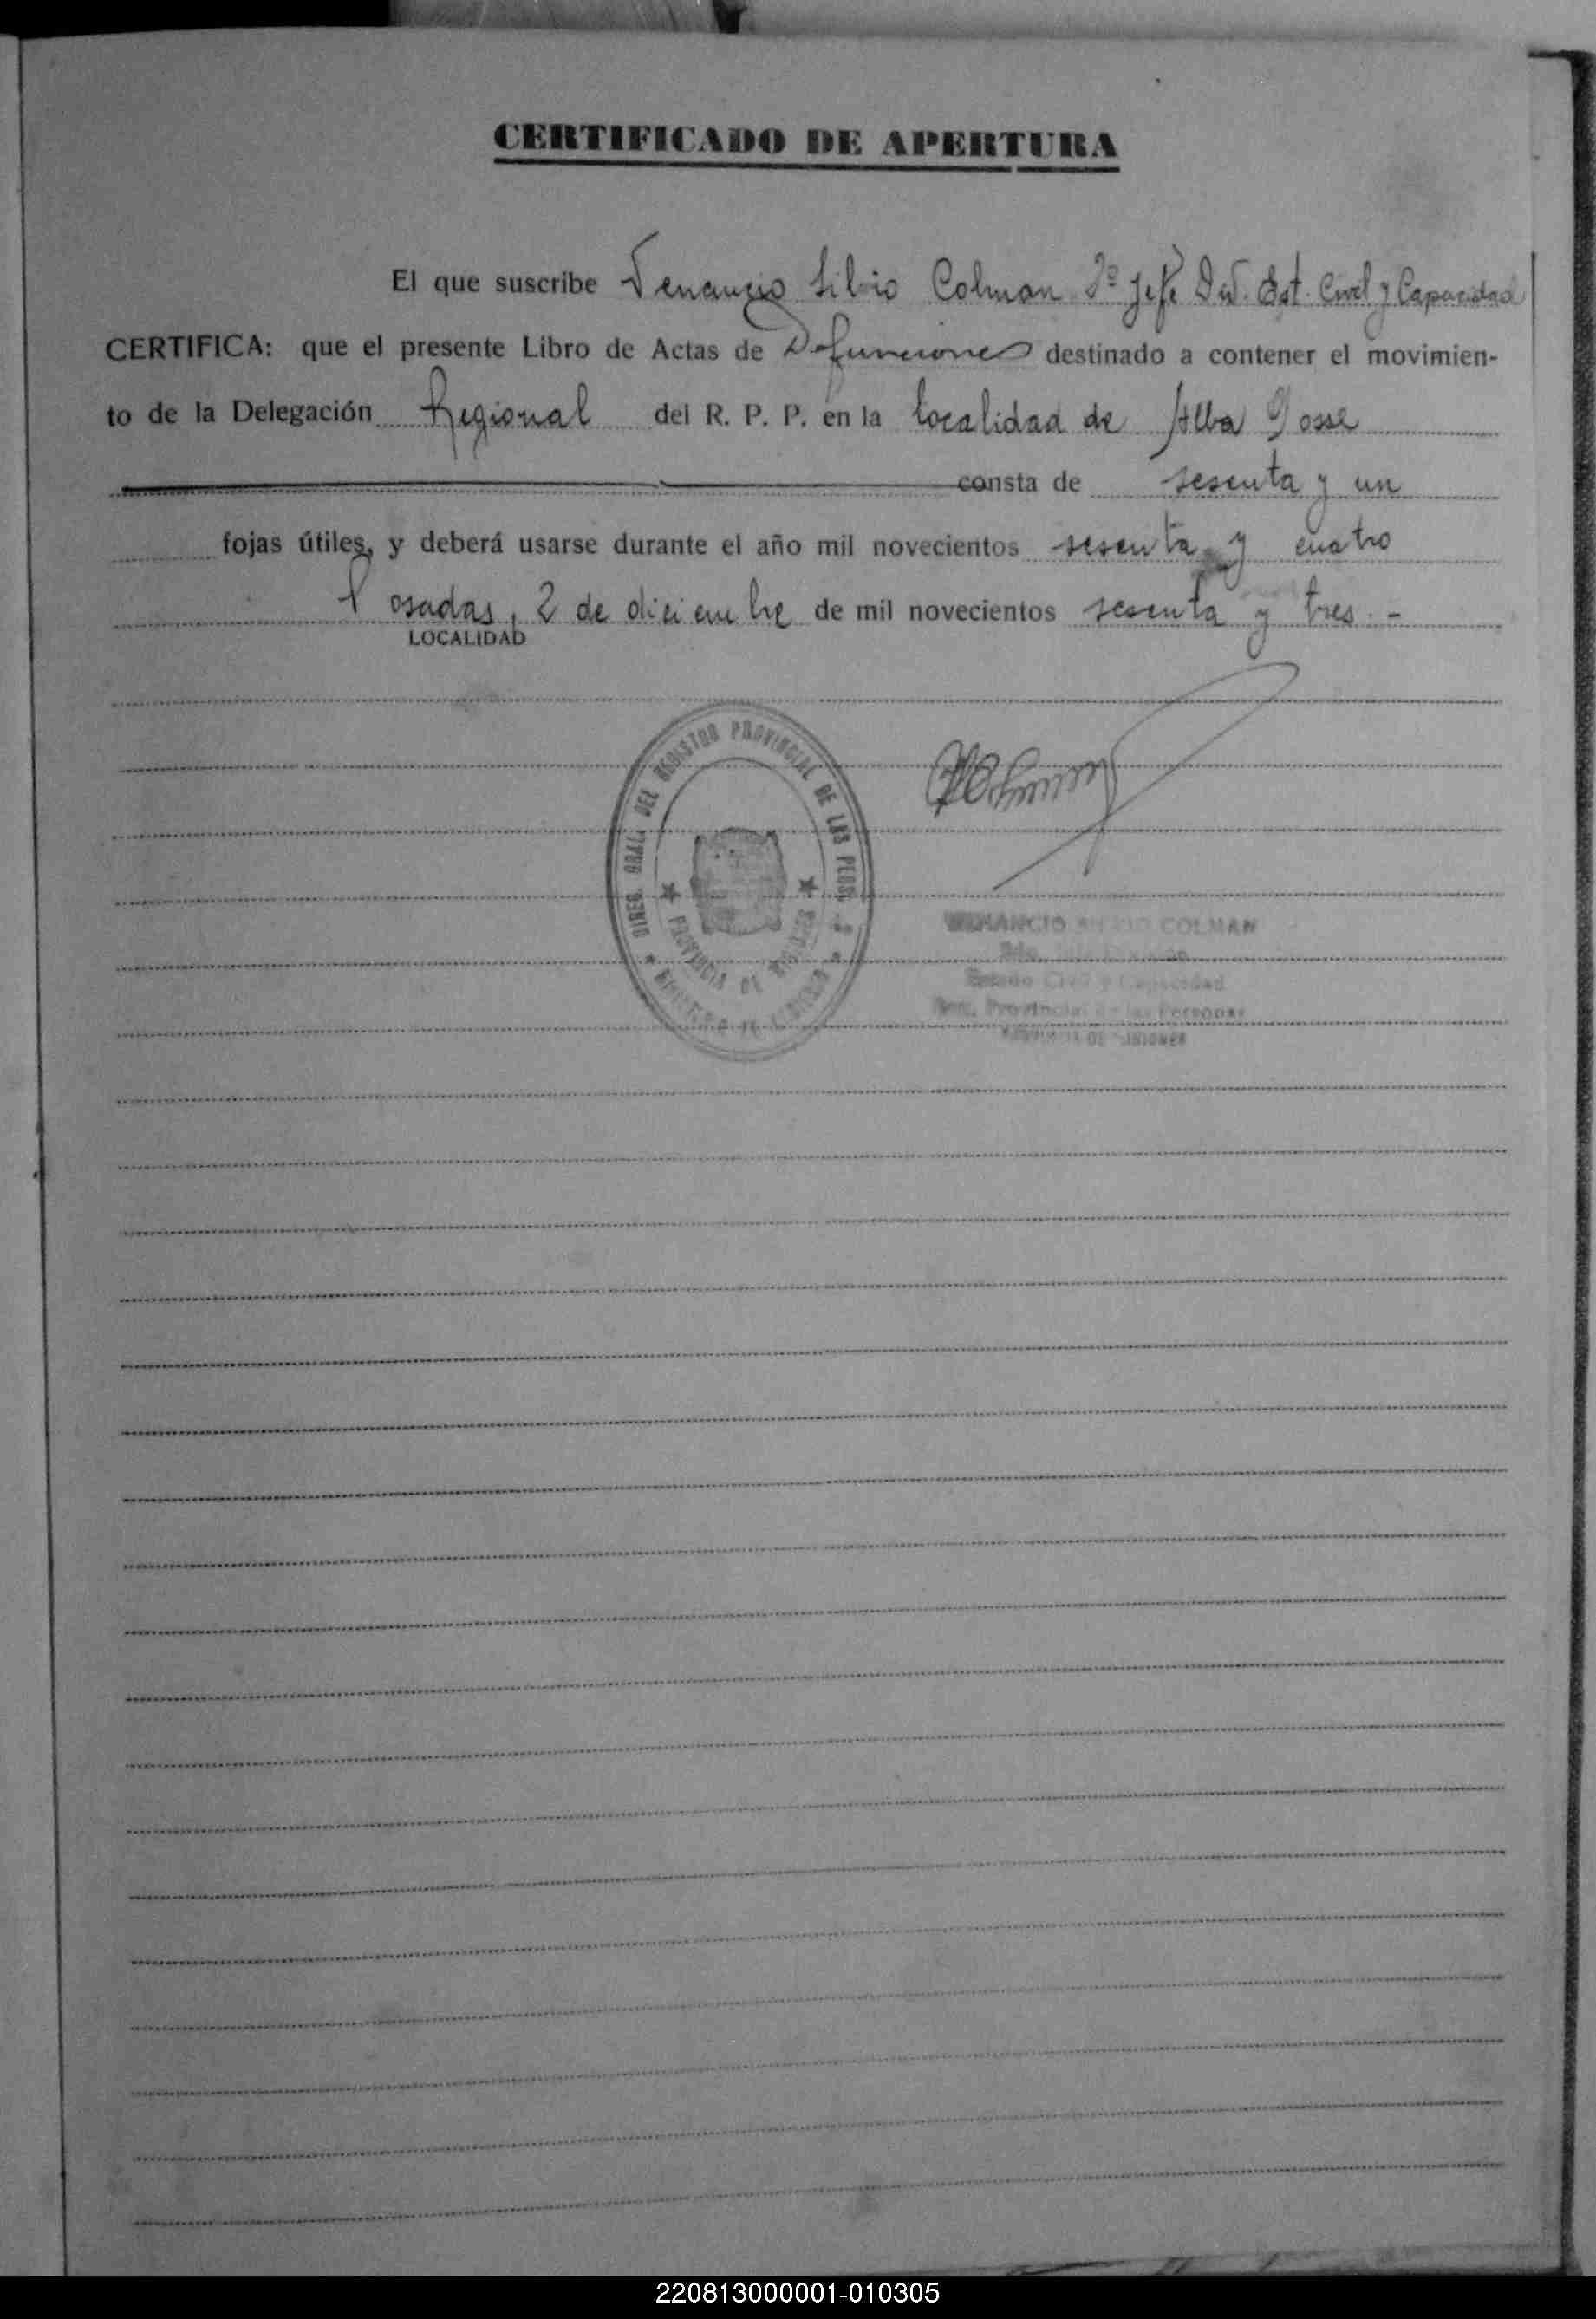 CERTIFICADO DE APERTURA
El que suscribe Venancio Silvio Colman 2º Jefe Div. Est. Civil y Capacidad
CERTIFICA: que el presente Libro de Actas de Defunciones destinado a contener el movimien-
to de la Delegación Regional del R. P. P. en la localidad de Alba Posse
consta de sesenta y un
fojas útiles, y deberá usarse durante el año mil novecientos sesenta y cuatro
Posadas, 2 de diciembre de mil novecientos sesenta y tres.-
LOCALIDAD
DIREC. GRAL. DEL REGISTRO PROVINCIAL DE LAS PERS.
PROVINCIA DE MISIONES
VENANCIO SILVIO COLMAN
Estado Civil y Capacidad
Provincial de las Personas
PROVINCIA DE MISIONES
220813000001-010305